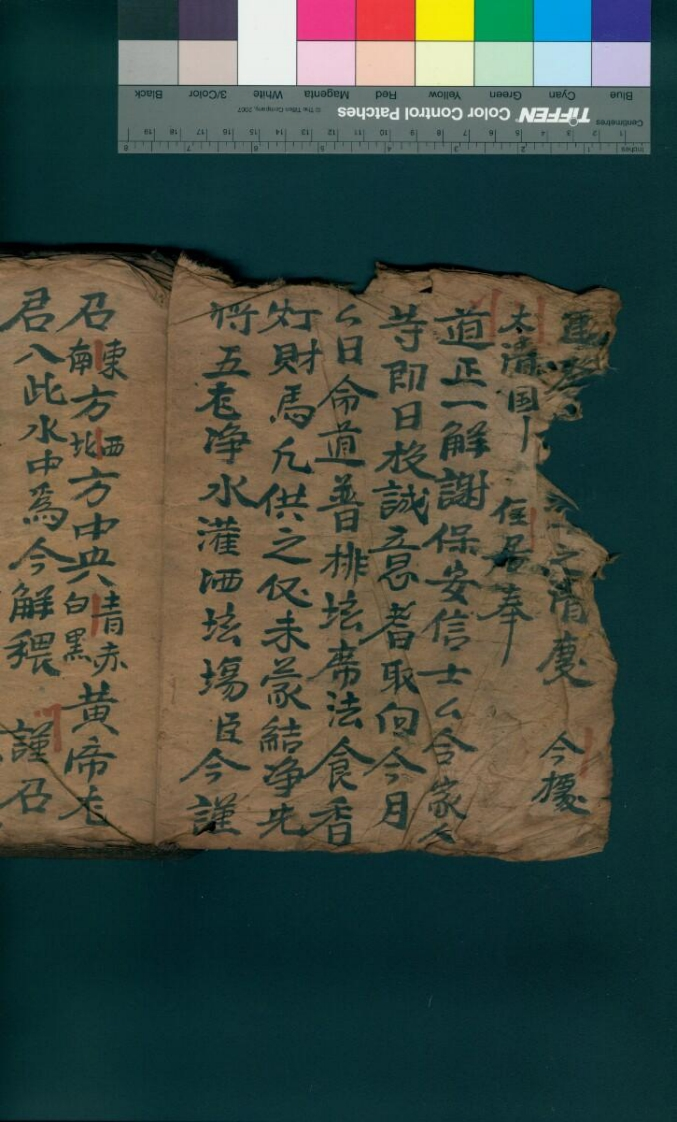 之清慶 今據
太清国 住居奉
道正一解謝保安信士厶合家
等即日投誠意者取向今月
厶日令道普排坛席法食香
灯財馬凢供之仪未蒙結净先
将五老净水灌洒坛塲臣今謹
召東南方西北方中央青赤白黑黄帝老
君入此水中爲今解穢 謹召
Blue Cyan Green Yellow Red Magenta White 3/Color Black
TIFFEN Color Control Patches © The Tiffen Company, 2007
Centimetres 1 2 3 4 5 6 7 8 9 10 11 12 13 14 15 16 17 18 19
Inches 1 2 3 4 5 6 7 8